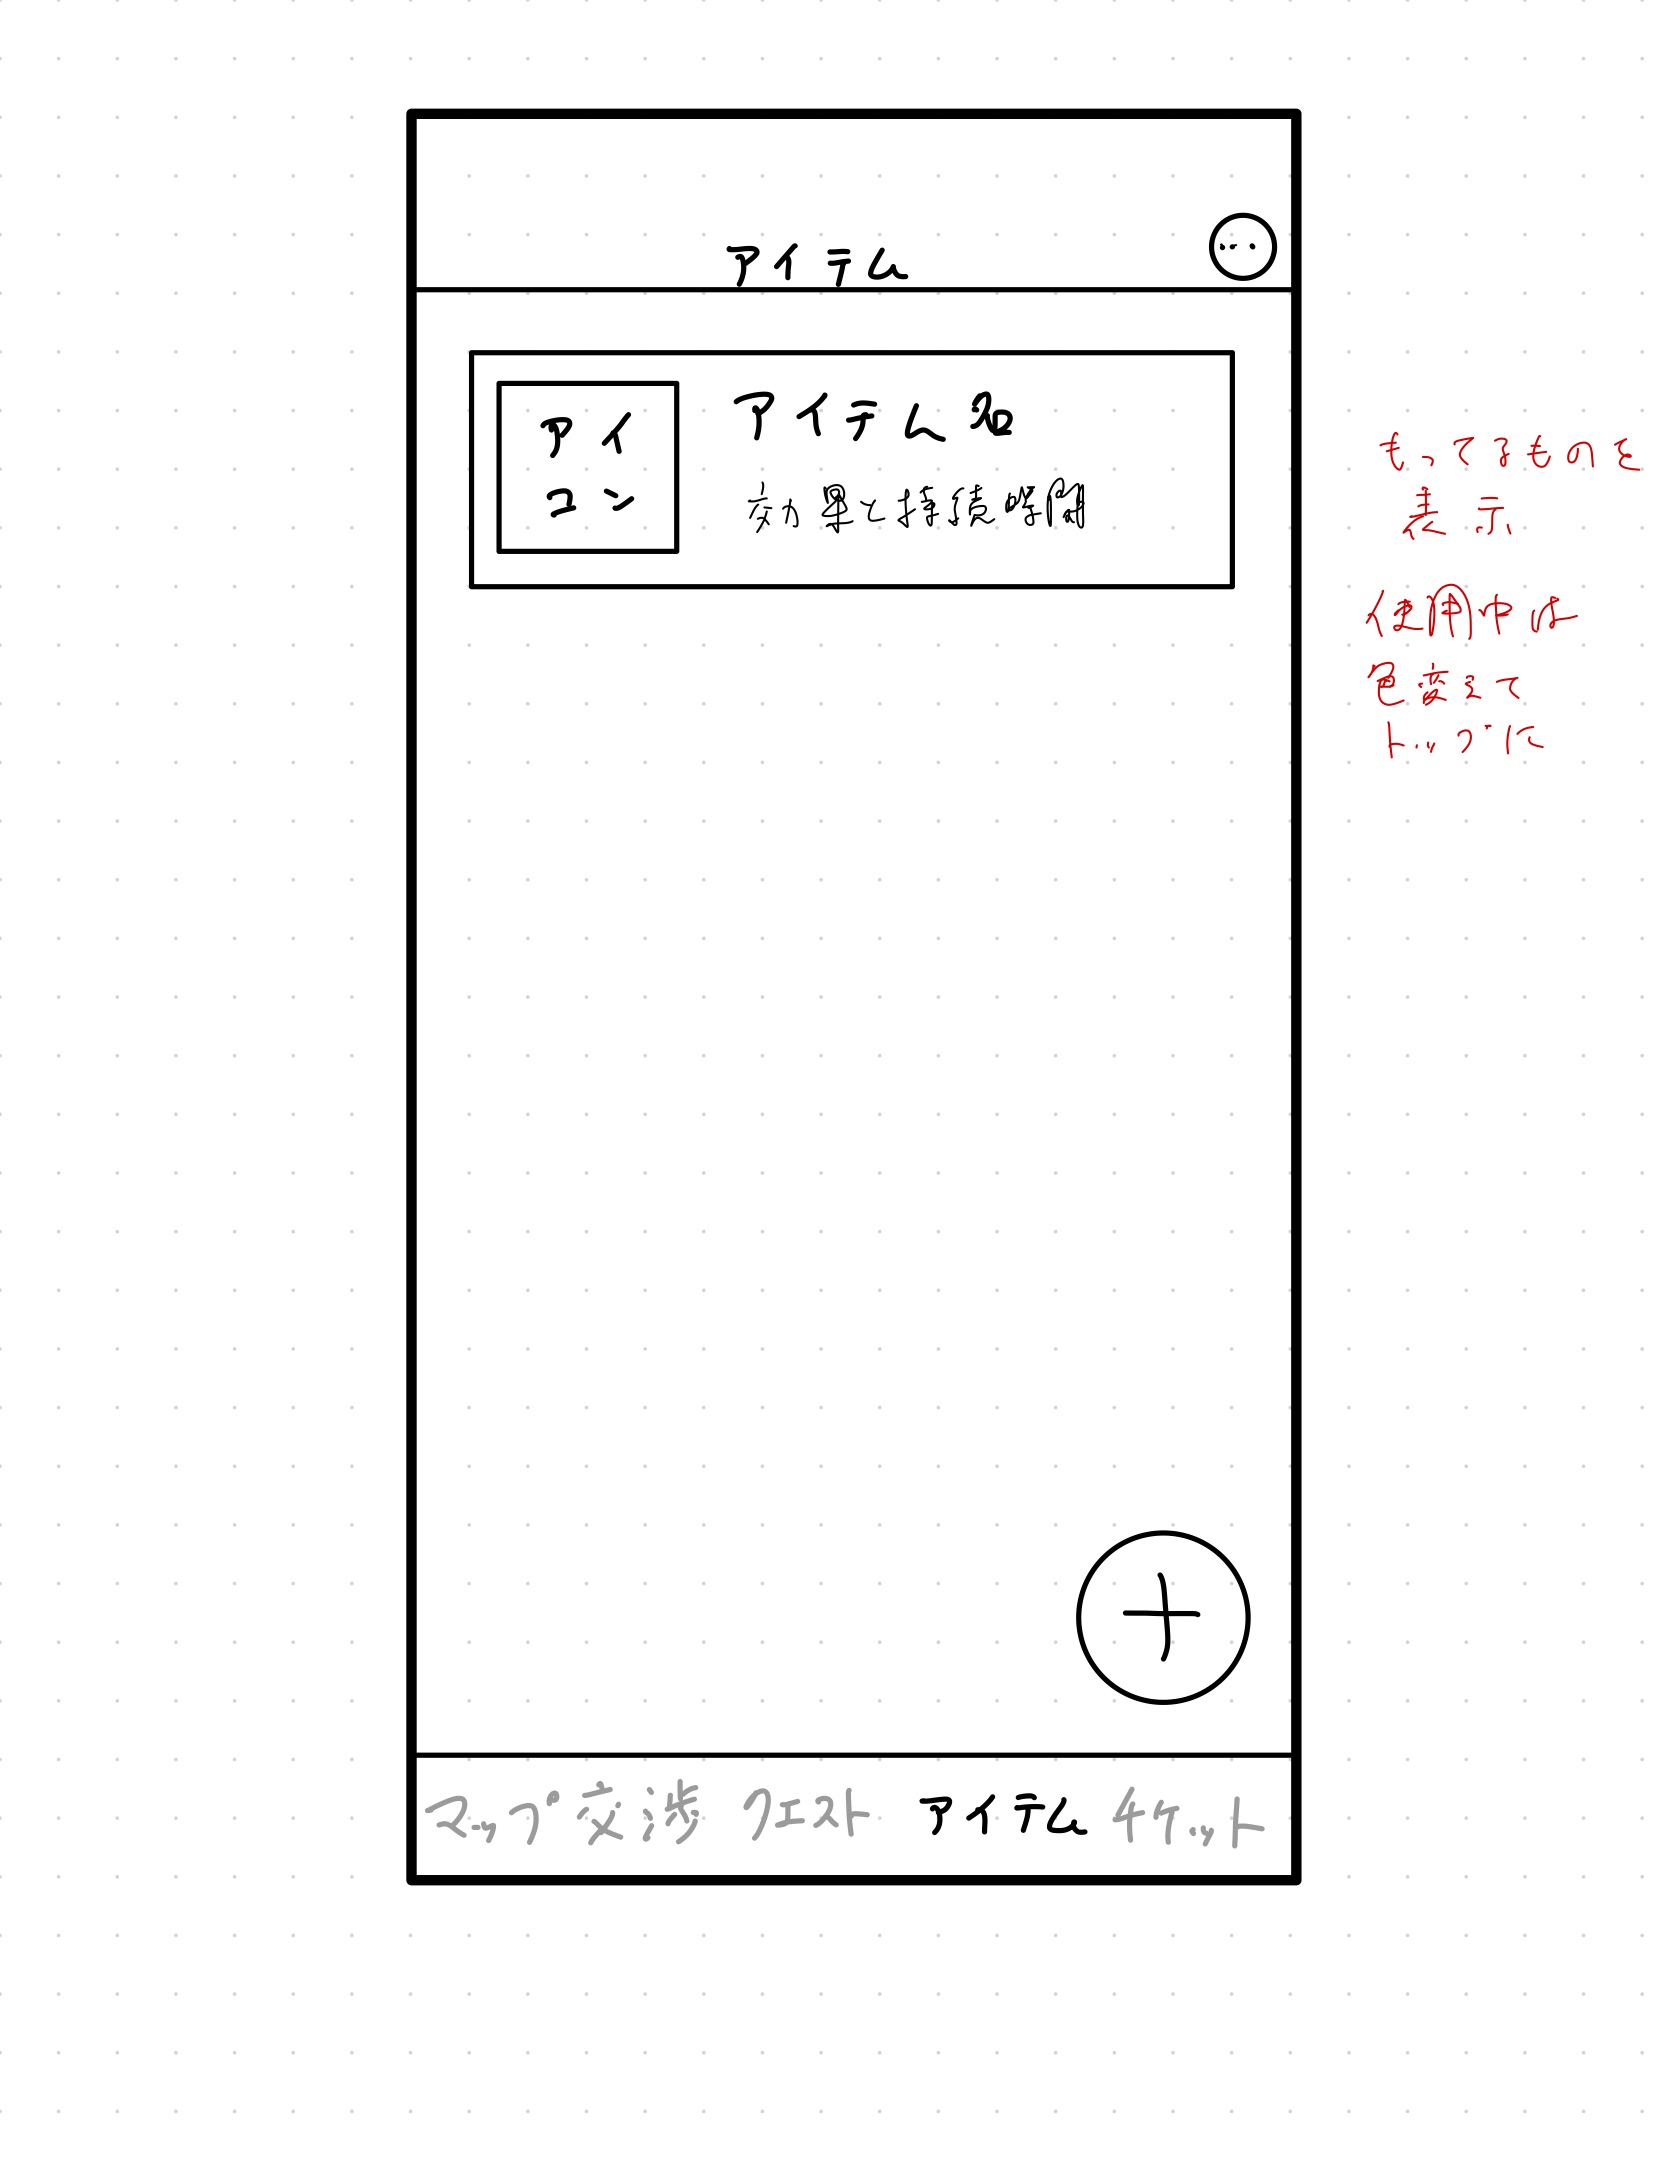 アイテム
アイ
コン
アイテム名
効果と持続時間
もってるものを
表示
使用中は
色変えて
トップに
マップ 交渉 クエスト アイテム チケット